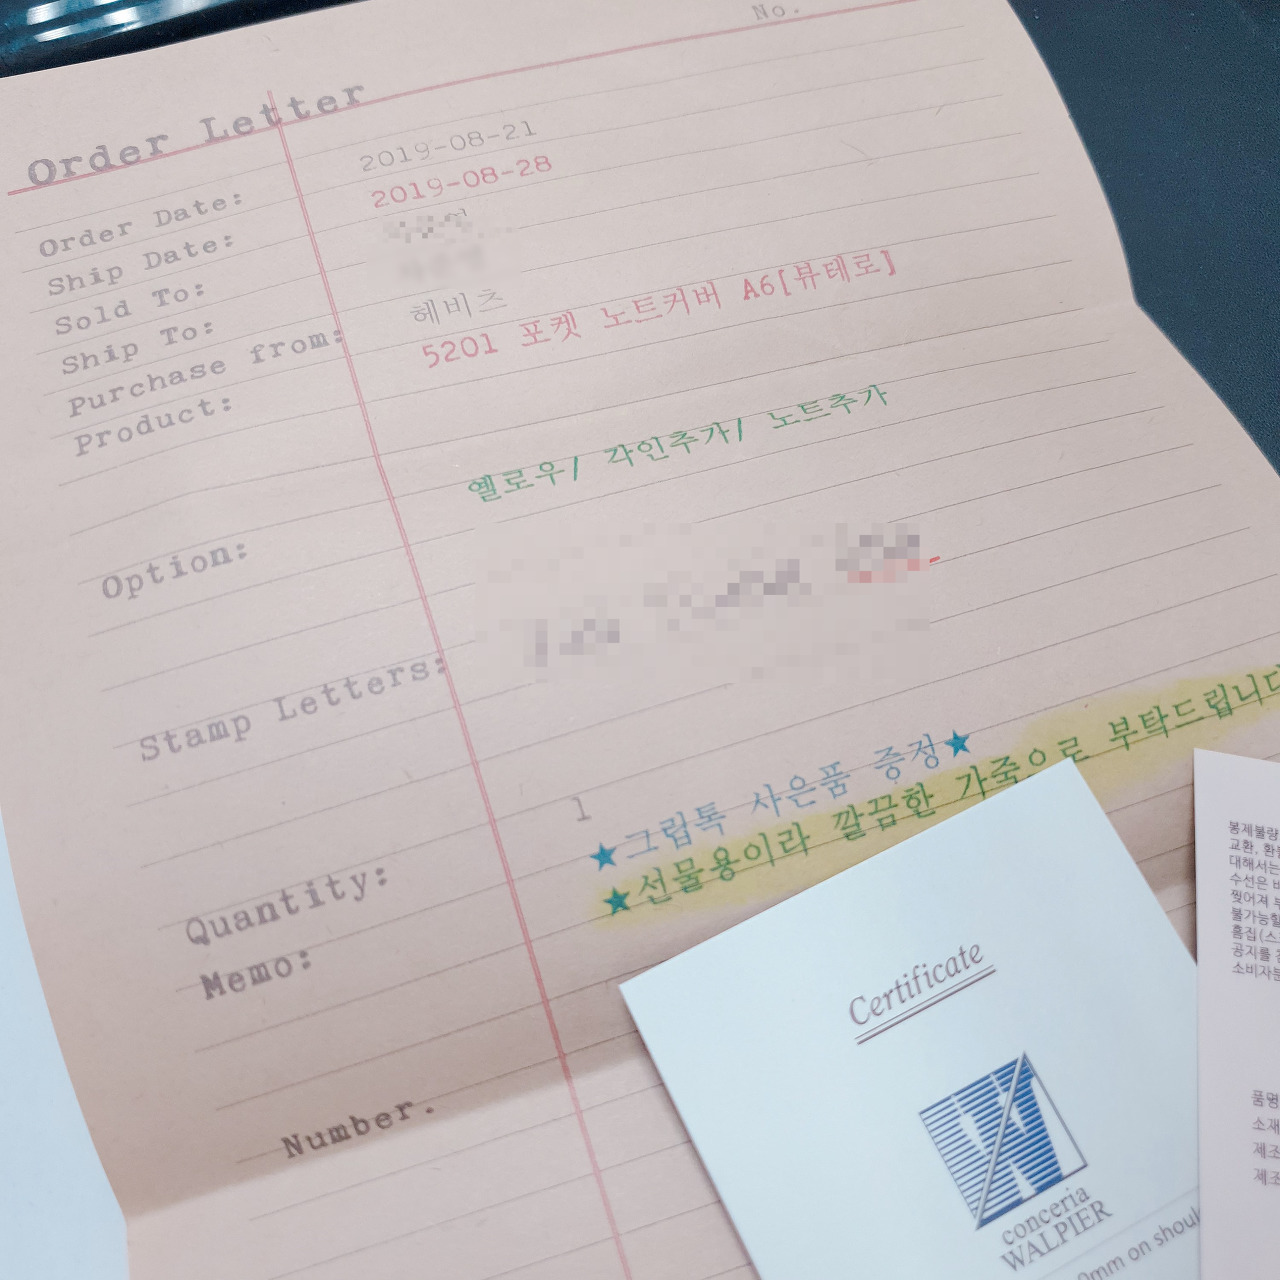 No.
Order Letter
Order Date: 2019-08-21
Ship Date: 2019-08-28
Sold To:
Ship To:
Purchase from: 헤비츠
Product: 5201 포켓 노트커버 A6[뷰테로]
Option: 옐로우/ 각인추가/ 노트추가
Stamp Letters:
Quantity: 1
Memo: ★그립톡 사은품 증정★
★선물용이라 깔끔한 가죽으로 부탁드립니다
Number.
Certificate
conceria
WALPIER
0mm on shoul
봉제불량
교환, 환불
대해서는
수선은
찢어져
불가능할
흠집(스
공지를
소비자분
품명
소재
제조
제조